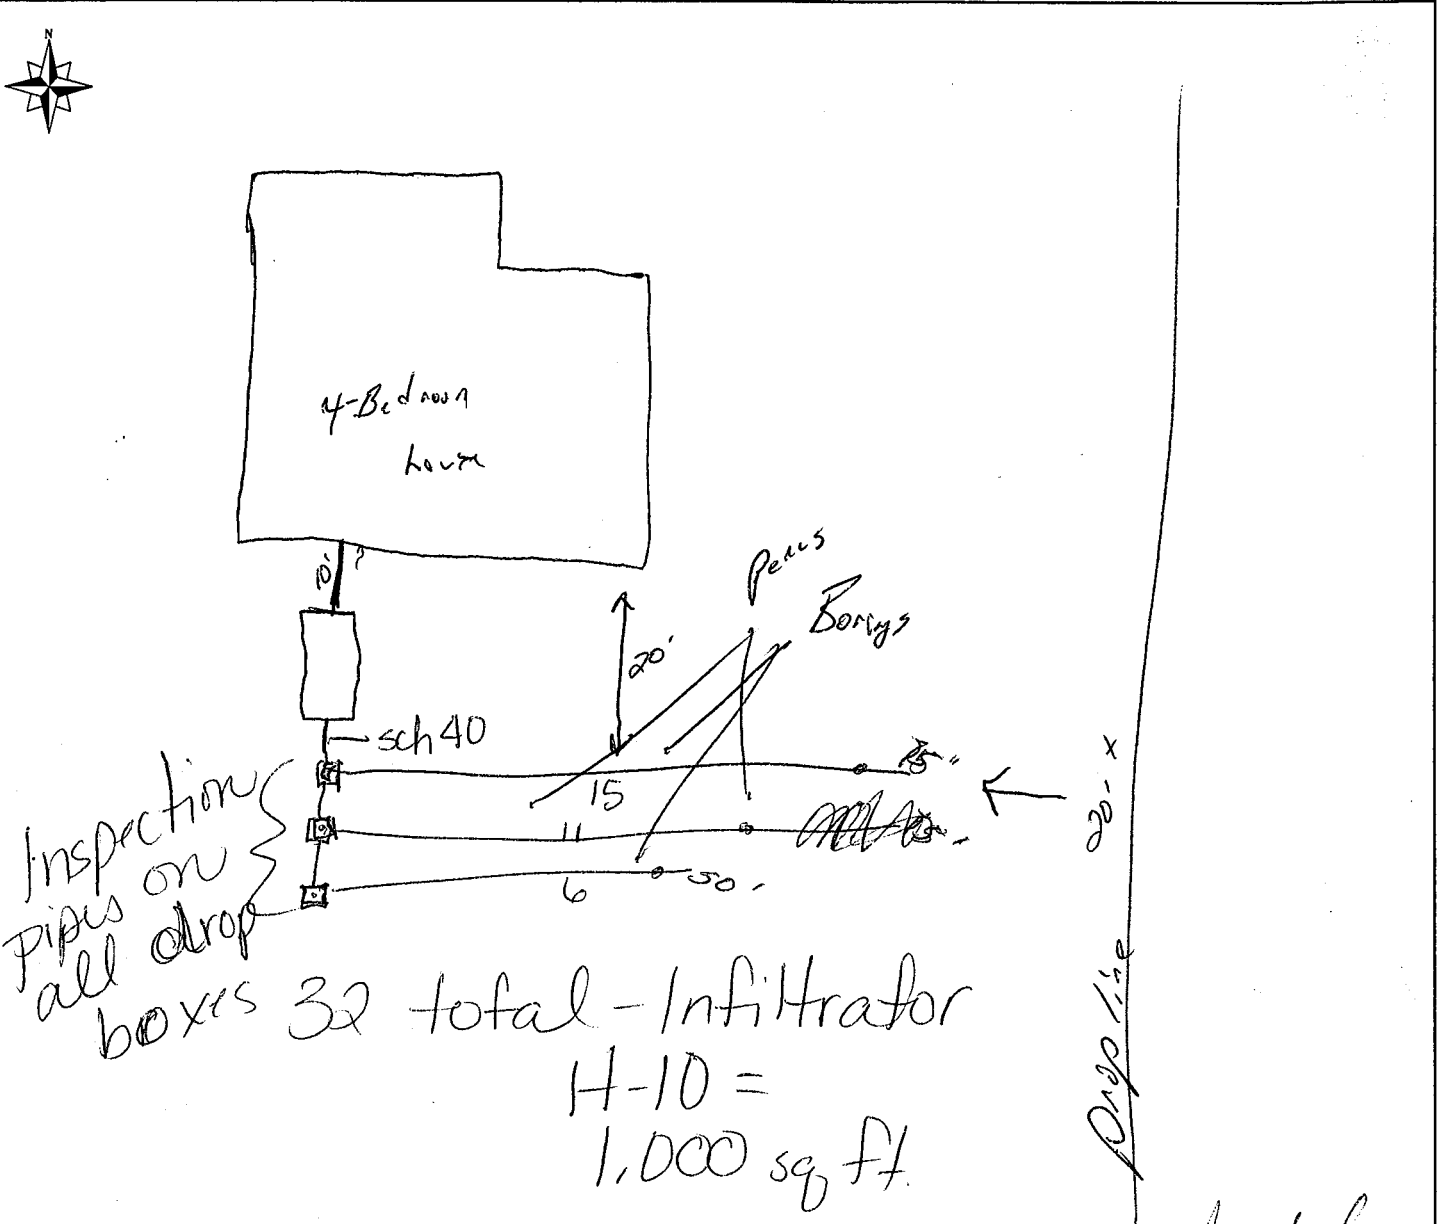 N
4-Bedroom
house
10'
Percs
Borings
20'
sch 40
15
11
6
50'
20' x
Inspection
pipes on
all drop
boxes
32 total - Infiltrator
H-10 =
1,000 sq ft.
Prop line